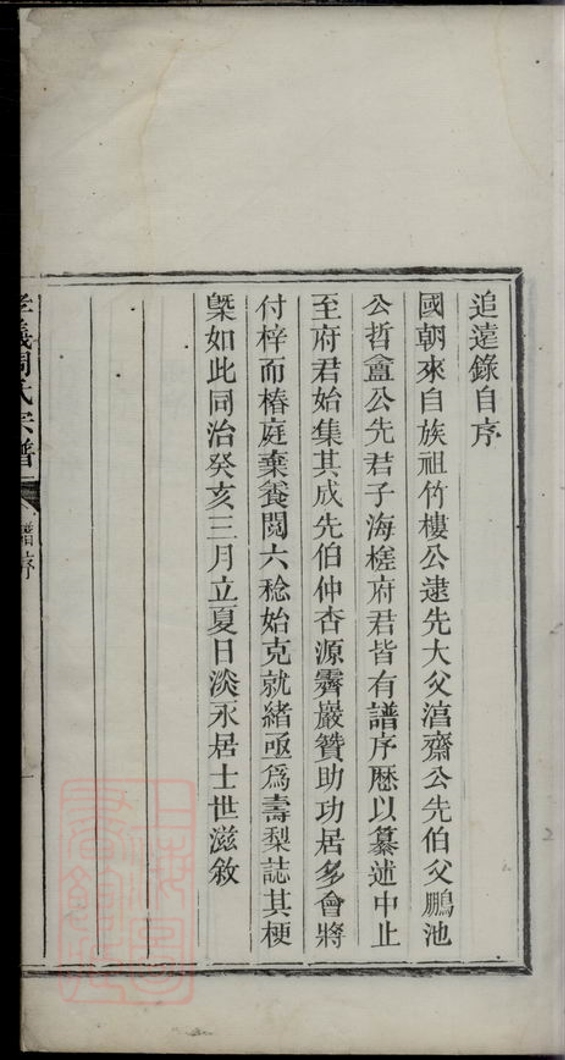 追遠錄自序
國朝來自族祖竹樓公逮先大父湻齋公先伯父鵬池
公哲盦公先君子海槎府君皆有譜序歷以纂述中止
至府君始集其成先伯仲杏源霽巖贊助功居多會將
付梓而椿庭棄養閱六稔始克就緒亟爲壽梨誌其梗
槩如此同治癸亥三月立夏日淡永居士世滋敘
孝義周氏宗譜
譜序
一